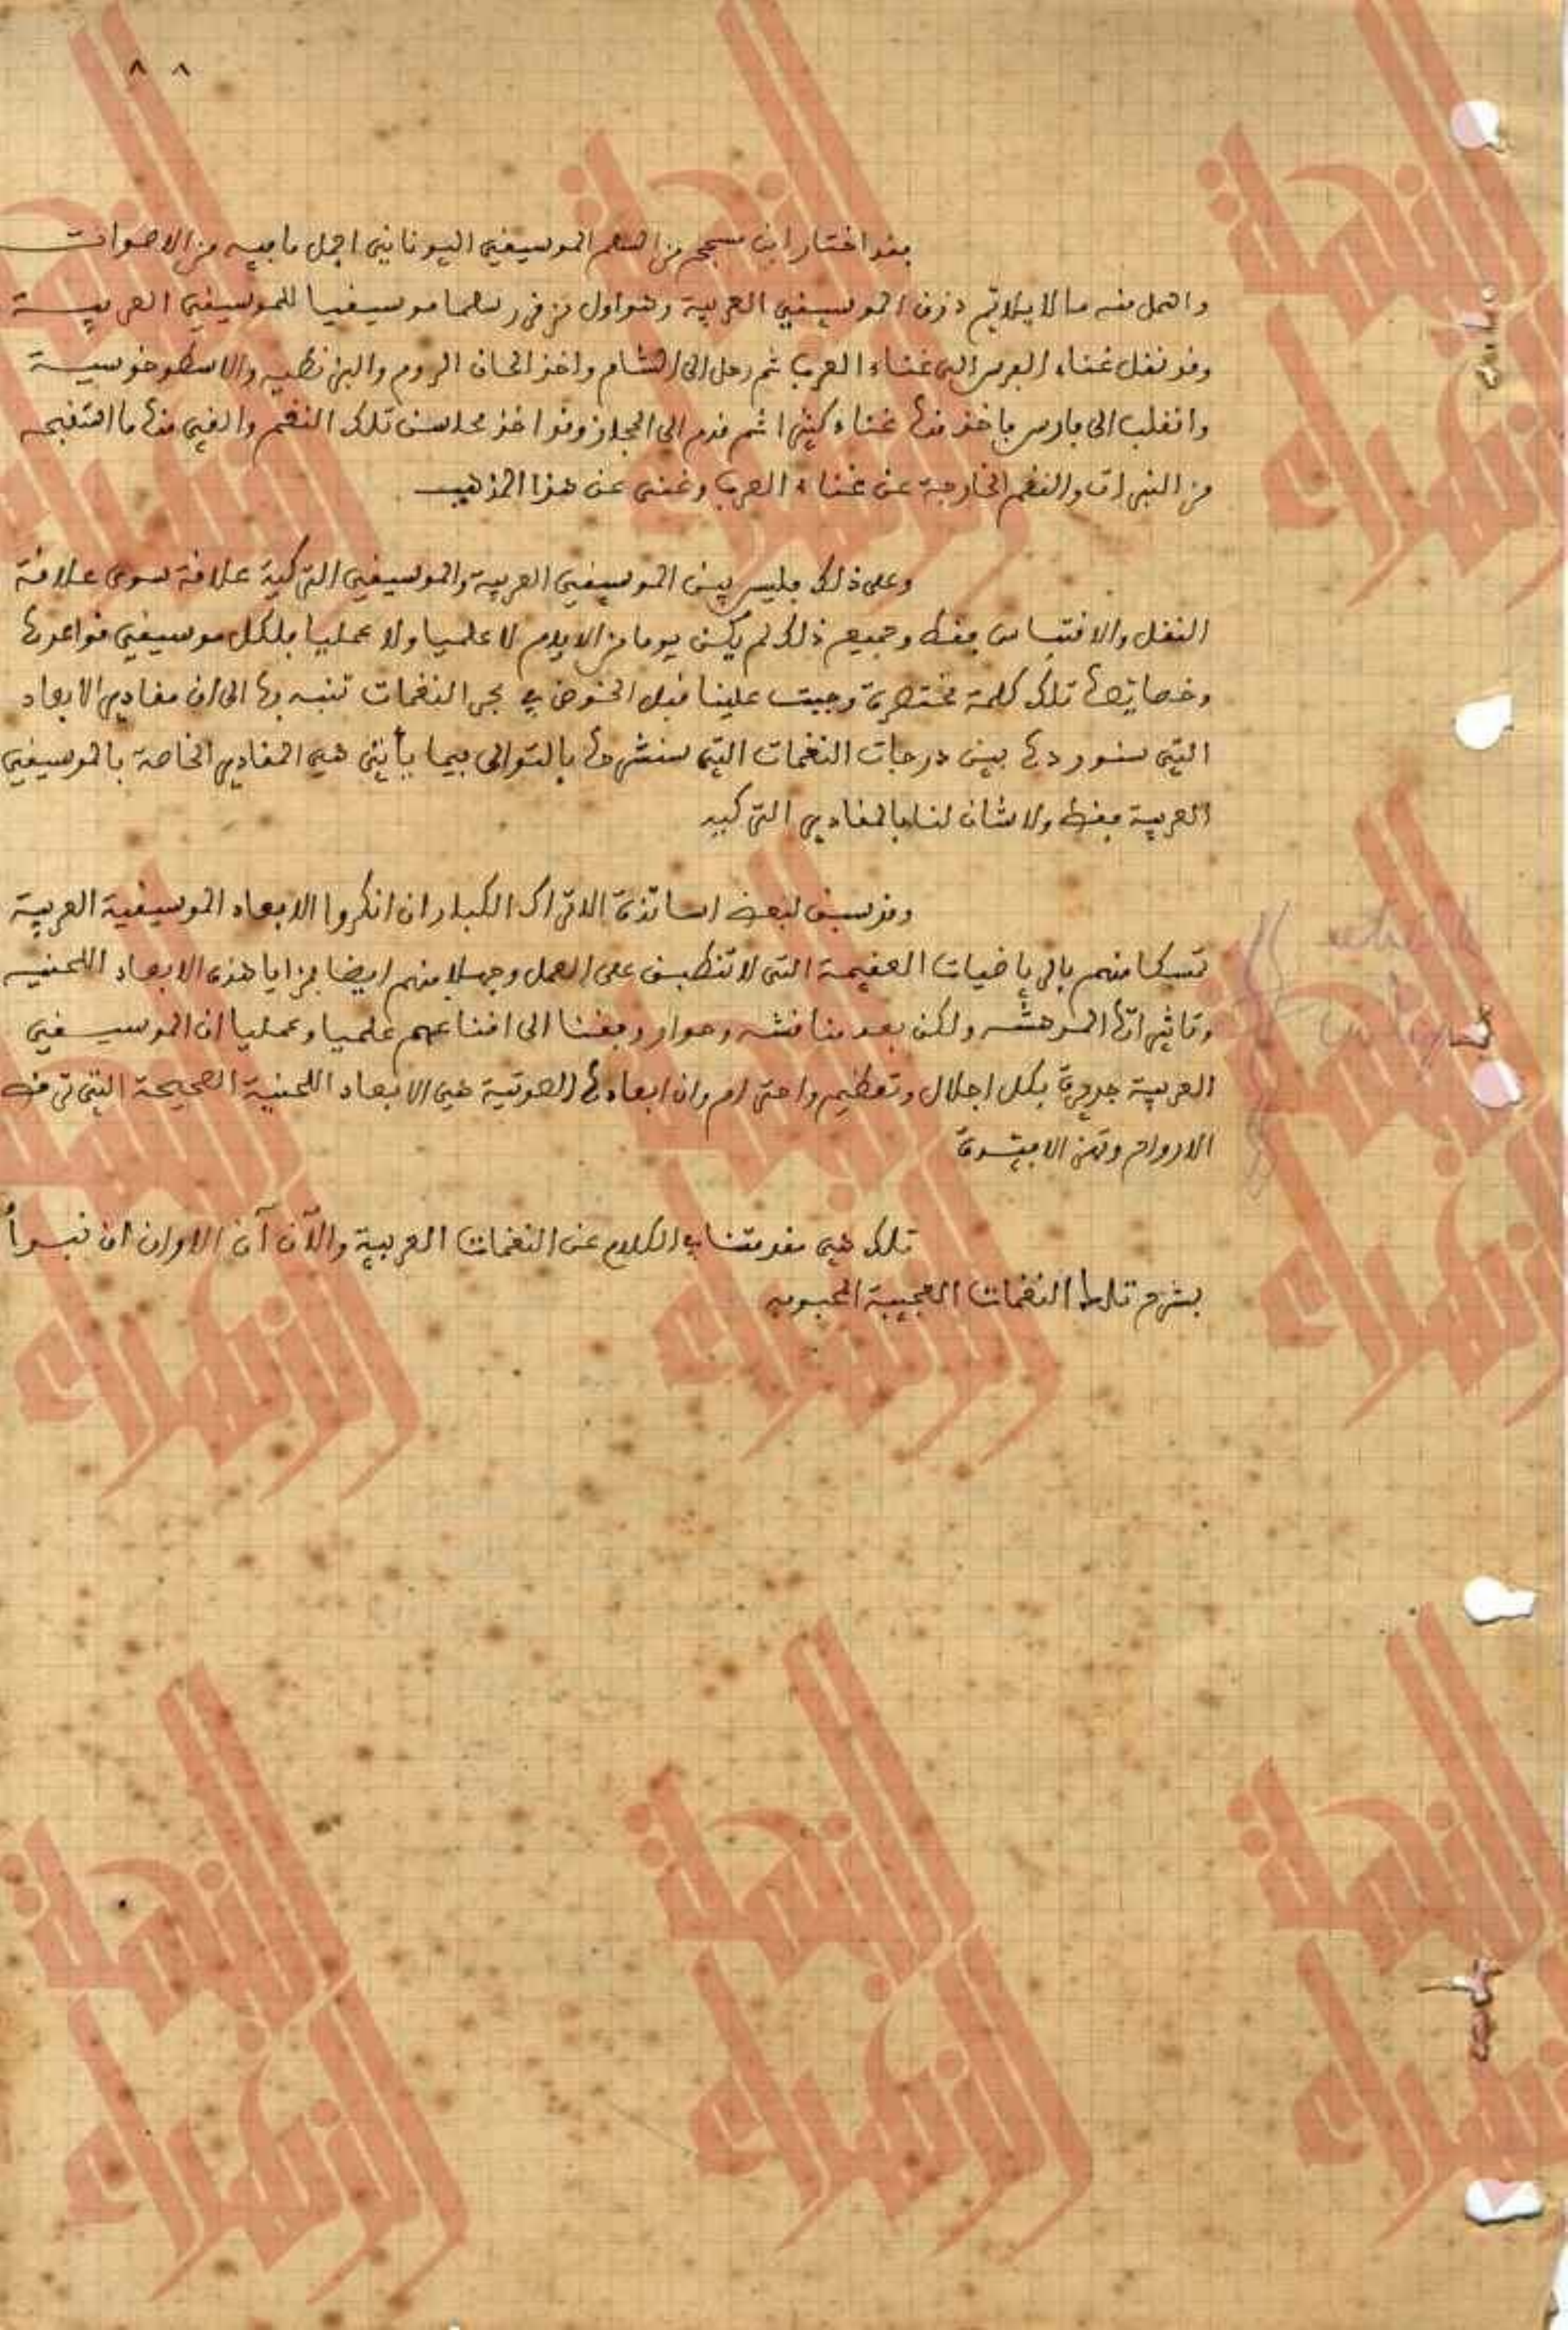 ٨ ٨
فقد اختار ابن مسجح من السلم الموسيقي اليوناني اجمل ما فيه من الاصوات
واهمل منه ما لا يلائم ذوق الموسيقي العربية وهو اول من قرر سلما موسيقيا للموسيقي العربية
وقد نقل غناء الفرس الى غناء العرب ثم رحل الى الشام واخذ الحان الروم والبزنطيه والاسطوخوسية
وانقلب الى فارس فاخذ منها غناء كثيرا ثم قدم الى الحجاز وقد اخذ محاسن تلك النغم والقى منها ما استقبحه
من النبرات والنغم الخارجة عن غناء العرب وغنى عن هذا المذهب
وعلى ذلك فليس بين الموسيقي العربية والموسيقي التركية علاقة سوى علاقة
النقل والاقتباس فقط وجميع ذلك لم يكن يوما من الايام لا علميا ولا عمليا فلكل موسيقي قواعدها
وخصائصها تلك كلمة مختصرة وجبت علينا قبل الخوض في بحر النغمات تنبه بها الى ان مقادير الابعاد
التي سنوردها بين درجات النغمات التي سنشرحها بالتوالى فيما يأتي هي المقادير الخاصة بالموسيقي
العربية فقط ولا شان لنا بالمقادير التركيه
وقد سبق لبعض اساتذة الاتراك الكبار ان انكروا الابعاد الموسيقية العربية
تمسكا منهم بالرياضيات العقيمة التي لا تنطبق على العمل وجهلا منهم ايضا بمزايا هذه الابعاد اللحنيه
وتاثيراتها المدهشه ولكن بعد مناقشه وحوار وفقنا الى اقناعهم علميا وعمليا ان الموسيقي
العربية جديرة بكل اجلال وتعظيم واحترام وان ابعادها الصوتية هي الابعاد اللحنية الصحيحة التي ترقص
الارواح وتهز الافئدة
تلك هي مقدمتنا في الكلام عن النغمات العربية والآن آن الاوان ان نبدأ
بشرح تلك النغمات العجيبة المحبوبه
النهلة
الزهراء